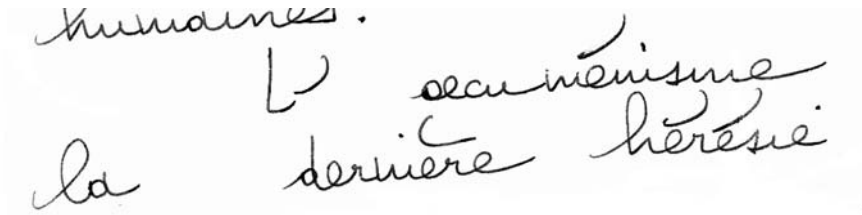 humaines.
L'œcuménisme
la dernière hérésie